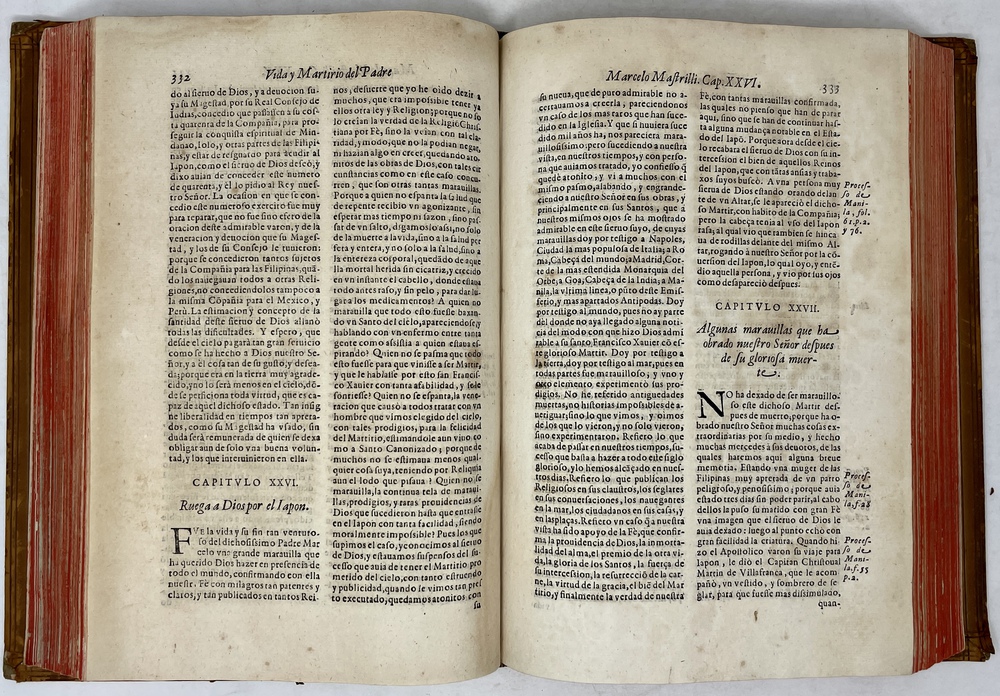 332
Vida y Martirio del Padre
do al sieruo de Dios, y a deuocion su-
ya su Magestad, por su Real Consejo de
Indias, concedio que passassen a su cos-
ta quarenta de la Compañia, para pro-
seguir la conquista espiritual de Min-
danao, Iolo, y otras partes de las Filipi-
nas, y estar de resguardo para acudir al
Iapon, como el sieruo de Dios desseò, y
dixo auian de conceder este numero
de quarenta, y èl lo pidio al Rey nues-
tro Señor. La ocasion en que se con-
cedio este numero exercito fue muy
para reparar, que no fue sino efeto de la
oracion deste admirable varon, y de la
veneracion y deuocion que su Mages-
tad, y los de su Consejo le tuuieron:
porque se concedieron tantos sujetos
de la Compañia para las Filipinas, quã-
do los nauegauan todos a otras Reli-
giones, no concediendolos tampoco a
la misma Cõpañia para el Mexico, y
Perù. La estimacion y concepto de la
santidad deste sieruo de Dios allanò
todas las dificultades. Y espero, que
desde el cielo pagarà tan gran seruicio
como se ha hecho a Dios nuestro Se-
ñor, y a èl cosa tan de su gusto, y dessea-
da; porque era en la tierra muy agrade-
cido, y no lo serà menos en el cielo, dõ-
de se perficiona toda virtud, que es ca-
paz de aquel dichoso estado. Tan insig
ne liberalidad en tiempos tan apreta-
dos, como su Magestad ha vsado, sin
duda serà remunerada de quien se dexa
obligar aun de solo vna buena volun-
tad, y los que interuinieron en ella.
CAPITVLO XXVI.
Ruega a Dios por el Iapon.
FVe la vida y su fin tan venturo-
so del dichosissimo Padre Mar
celo vna grande marauilla que
ha querido Dios hazer en presencia de
todo el mundo, confirmando con ella
nuestr. Fè con milagros tan patentes y
claros, y tan publicados en tantos Rei-
nos, desuerte que yo he oido dezir a
muchos, que era impossible tener ya
ellos otra ley y Religion; porque no so
lo creian la verdad de la Religiõ Chris-
tiana por Fè, sino la veian con tal cla-
ridad, y modo, que no la podian negar,
ni hazian algo en creer, quedando ato-
nitos de las obras de Dios, con tales cir
cunstancias como en este caso concu-
rren, que son otras tantas marauillas.
Porque a quien no espanta la salud que
de repente recibio vn agonizante, sin
esperar mas tiempo ni sazon, sino pas-
sar de vn salto, digamoslo assi, no solo
de la muerte a la vida, sino a la salud per
feta y entera, y no solo a la salud sino a
la entereza corporal, quedãdo de aque
lla mortal herida sin cicatriz, y crecido
en vn instante el cabello, donde estaua
todo antes raso, y sin pelo; para dar lu-
gar a los medicamentos? A quien no
marauilla que todo esto fuesse baxan-
do vn Santo del cielo, apareciendose, y
hablando con vn enfermo entre tanta
gente como assistia a quien estaua es-
pirando? Quien no se pasma que todo
esto fuesse para que viniesse a ser Martir,
y que le hablasse por esto san Francis-
co Xauier con tanta afabilidad, y se le
sonriesse? Quien no se espanta, la vene-
racion que causò a todos tratar con vn
hombre que vimos elegido del cielo,
con tales prodigios, para la felicidad
del Martirio, estimandole aun viuo co
mo a Santo Canonizado; porque de
muchos no se estimaua menos qual-
quier cosa suya, teniendo por Reliquia
aun el lodo que pisaua? Quien no se
marauilla, la continua tela de maraui-
llas, prodigios, y raras prouidencias de
Dios que sucedieron hasta que entrasse
en el Iapon con tanta facilidad, siendo
moralmente impossible? Pues los que
supimos el caso, y conocimos al sieruo
de Dios, y estauamos suspensos del su-
cesso que auia de tener el Martirio pro
metido del cielo, con tanto estruendo
y publicidad, quando le vimos tan pres
to executado, quedamos atonitos con
su
Marcelo Mastrilli. Cap. XXVI.
333
su nueua, que de puro admirable no a-
certauamos a creerla, pareciendonos
vn caso de los mas raros que han suce-
dido en la Iglesia. Y que si huuiera suce
dido mil años ha, nos pareciera mara-
uillosissimo; pero sucediendo a nuestra
vista, en nuestros tiempos, y con perso-
na que auiamos tratado, yo confiesso q̃
quedè atonito, y vi a muchos con el
mismo pasmo, alabando, y engrande-
ciendo a nuestro Señor en sus obras, y
principalmente en sus Santos, que a
nuestros mismos ojos se ha mostrado
admirable en este sieruo suyo, de cuyas
marauillas doy por testigo a Naples,
Ciudad la mas populosa de Italia; a Ro
ma, Cabeça del mundo; a Madrid, Cor-
te de la mas estendida Monarquia del
Orbe, a Goa, Cabeça de la India; a Ma-
nila, la vltima linea, o pũto deste Emis-
ferio, y mas apartados Antipodas. Doy
por testigo al mundo, pues no ay parte
del donde no aya llegado alguna noti-
cia del modo con que hizo Dios admi
rable a su santo Francisco Xauier cõ es-
te glorioso Martir. Doy por testigo a
la tierra, doy por testigo al mar, pues en
todas partes fue marauilloso; y vno y
otro elemento experimentò sus pro-
digios. No he referido antiguedades
muertas, no historias impossibles de a-
ueriguar, sino lo que vimos, y oimos
de los que lo vieron, y no solo vieron,
sino experimentaron. Refiero lo que
acaba de passar en nuestros tiempos, su-
cesso que basta a hazer a todo este siglo
glorioso, y lo hemos alcançado en nues-
tros dias. Refiero lo que publican los
Religiosos en sus claustros, los seglares
en sus conuersaciones, los nauegantes
en la mar, los ciudadanos en sus casas, y
en las plaças. Refiero vn caso q̃ a nuestra
vista ha sido apoyo de la Fè, que confir-
ma la prouidencia de Dios, la inmorta-
lidad del alma, el premio de la otra vi-
da, la gloria de los Santos, la fuerça de
su intercession, la resurreccion de la car-
ne, la virtud de la gracia, el biẽ del Mar
tirio, y finalmente la verdad de nuestra
Fè, con tantas marauillas confirmada,
las quales no pienso que han de parar
aqui, sino que se han de continuar has-
ta alguna mudança notable en el Esta-
do del Iapõ. Porque aora desde el cie-
lo recabara el sieruo de Dios con su in-
tercession el bien de aquellos Reinos
del Iapon, que con tãtas ansias y traba-
xos suyos buscò. A vna persona muy
sierua de Dios estando orando delan
te de vn Altar, se le apareciò el dicho-
so Martir, con habito de la Compañia;
pero la cabeça tenia al vso del Iapon
rasa, al qual vio que tambien se hinca
ua de rodillas delante del mismo Al-
tar, rogando a nuestro Señor por la cõ
uersion del Iapon, lo qual oyo, y entẽ-
dio aquella persona, y vio por sus ojos
como desapareciò despues.
Proces-
so de
Mani-
la, fol.
61. p. 2.
y 76.
CAPITVLO XXVII.
Algunas marauillas que ha
obrado nuestro Señor despues
de su gloriosa muer-
te.
NO ha dexado de ser marauillo-
so este dichoso Martir des-
pues de muerto, porque ha o-
brado nuestro Señor muchas cosas ex-
traordinarias por su medio, y hecho
muchas mercedes a sus deuotos, de las
quales haremos aqui alguna breue
memoria. Estando vna muger de las
Filipinas muy apretada de vn parto
peligroso, y penosissimo; porque auia
estado tres dias sin poder parir, al cabo
dellos la puso su marido con gran Fè
vna imagen que el sieruo de Dios le
auia dexado: luego al punto echò con
gran facilidad la criatura. Quando hi-
zo el Apostolico varon su viaje para
Iapon, le diò el Capitan Christoual
Martin de Villafranca, que le acom-
pañò, vn vestido, y sombrero de se
glar, para que fuesse mas dissimulado,
Proces-
so de
Mani-
la. f. 28
Proces-
so de
Mani-
la. f. 35
p. 2.
quan-